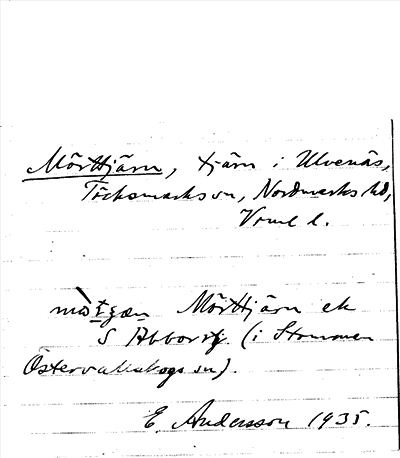 Mörttjärn, tjärn i Ulvenäs,
Töcksmarks sn, Nordmarks hd,
Vrml l.
Mörttjärn ek
S Abborrtj. (i Strommen
Östervallskogs sn).
E. Andersson 1935.